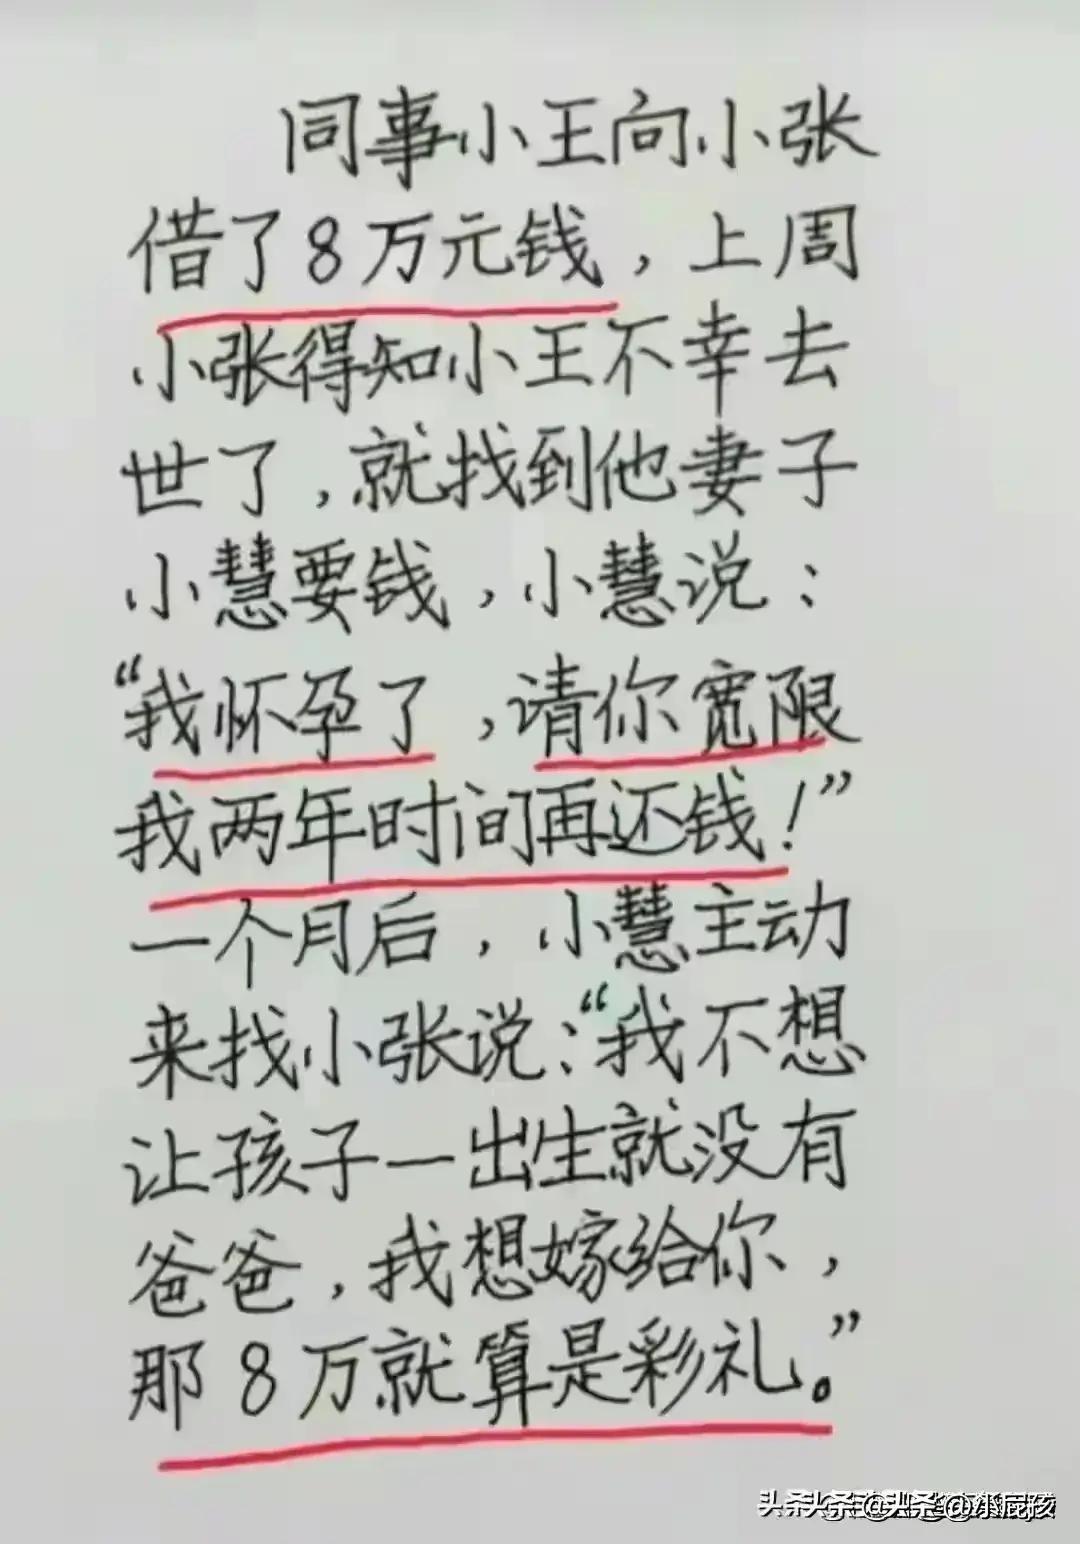 同事小王向小张
借了8万元钱，上周
小张得知小王不幸去
世了，就找到他妻子
小慧要钱，小慧说：
“我怀孕了，请你宽限
我两年时间再还钱！”
一个月后，小慧主动
来找小张说：“我不想
让孩子一出生就没有
爸爸，我想嫁给你，
那8万就算是彩礼。”
头条@小屁孩